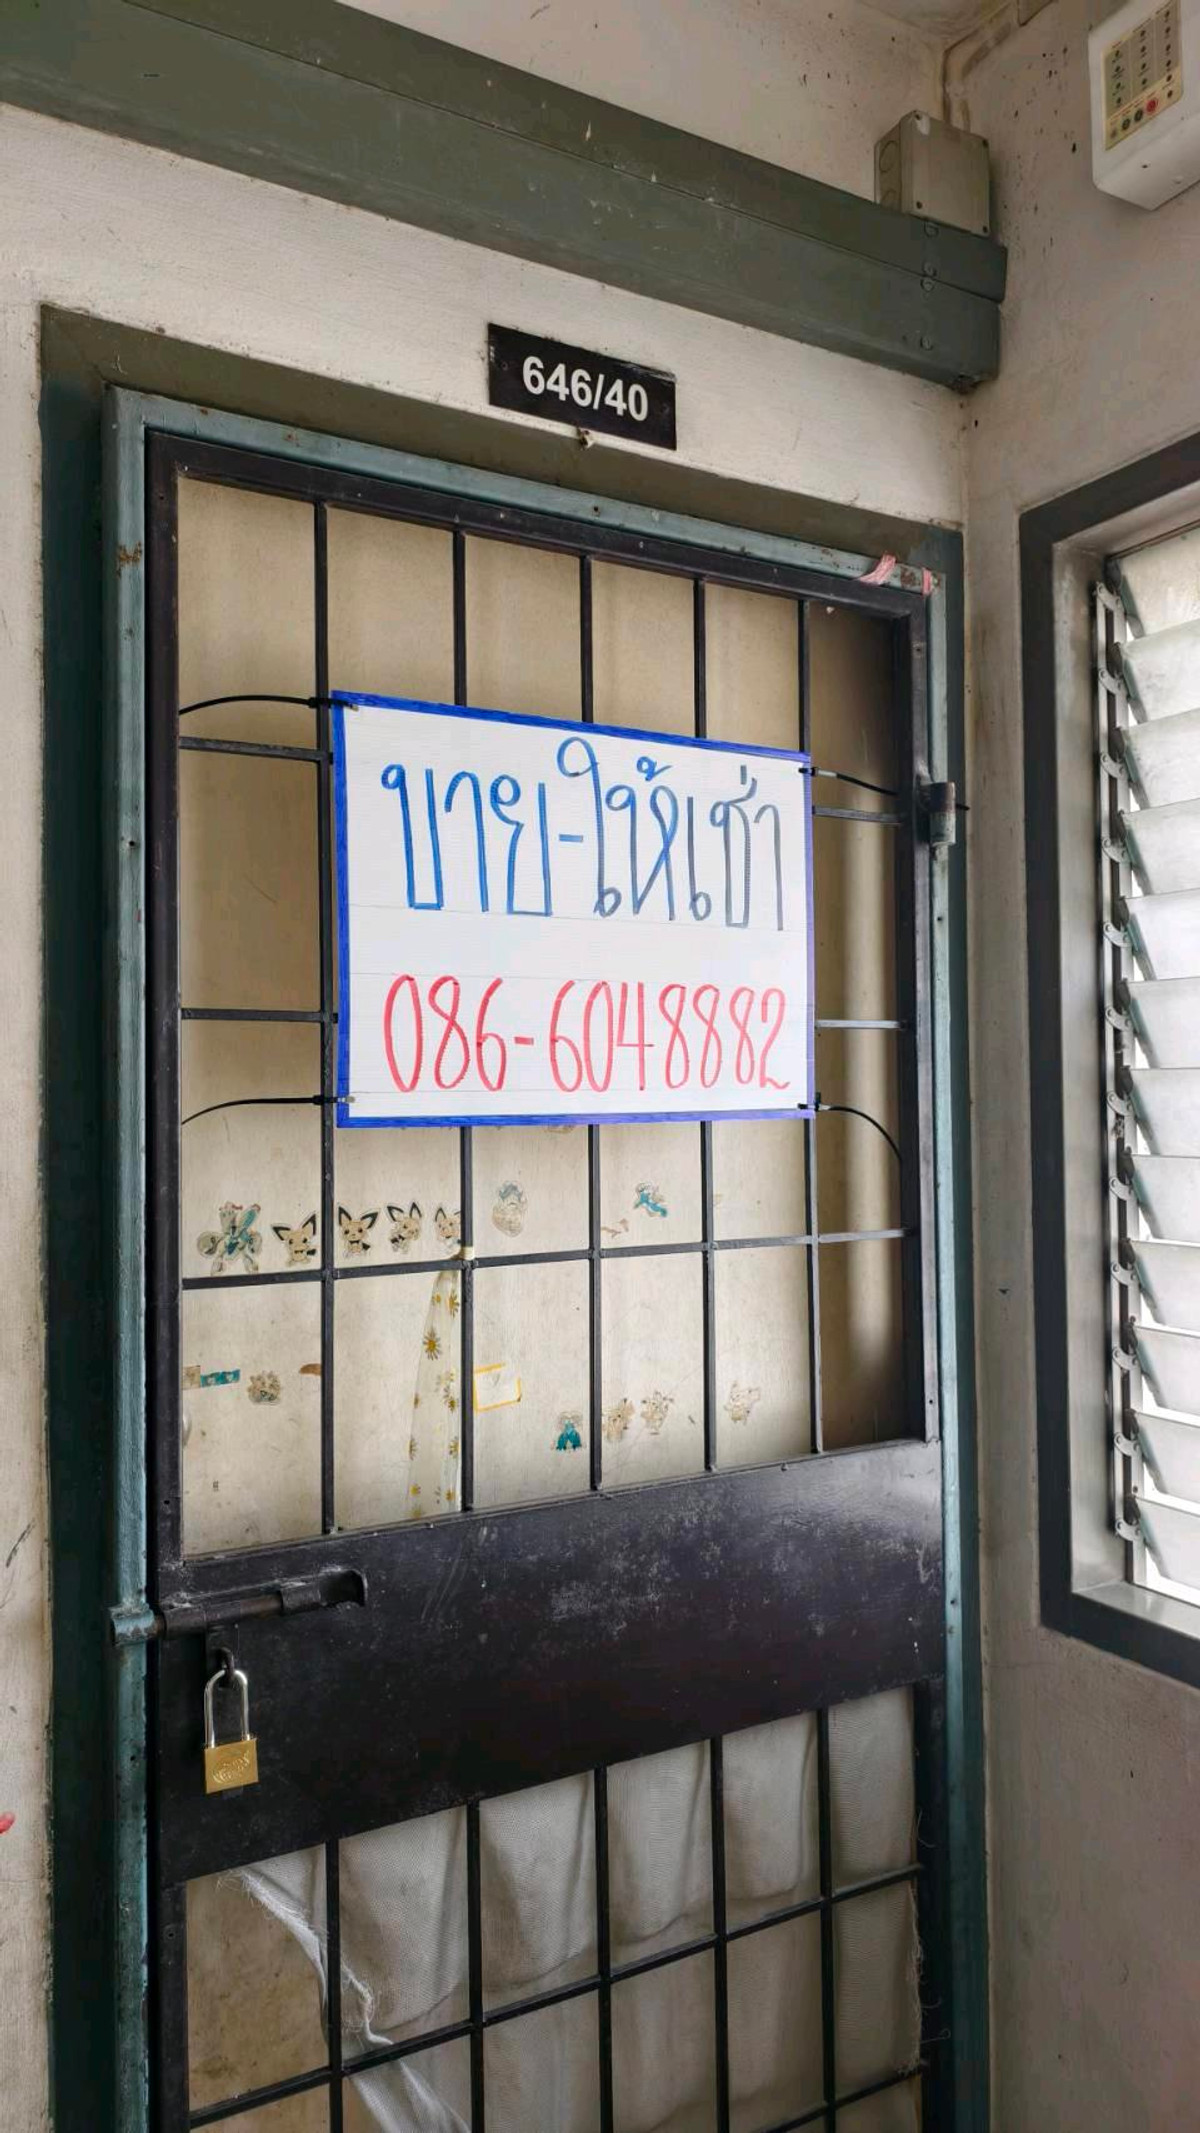 646/40
ขาย-ให้เช่า
086-6048882